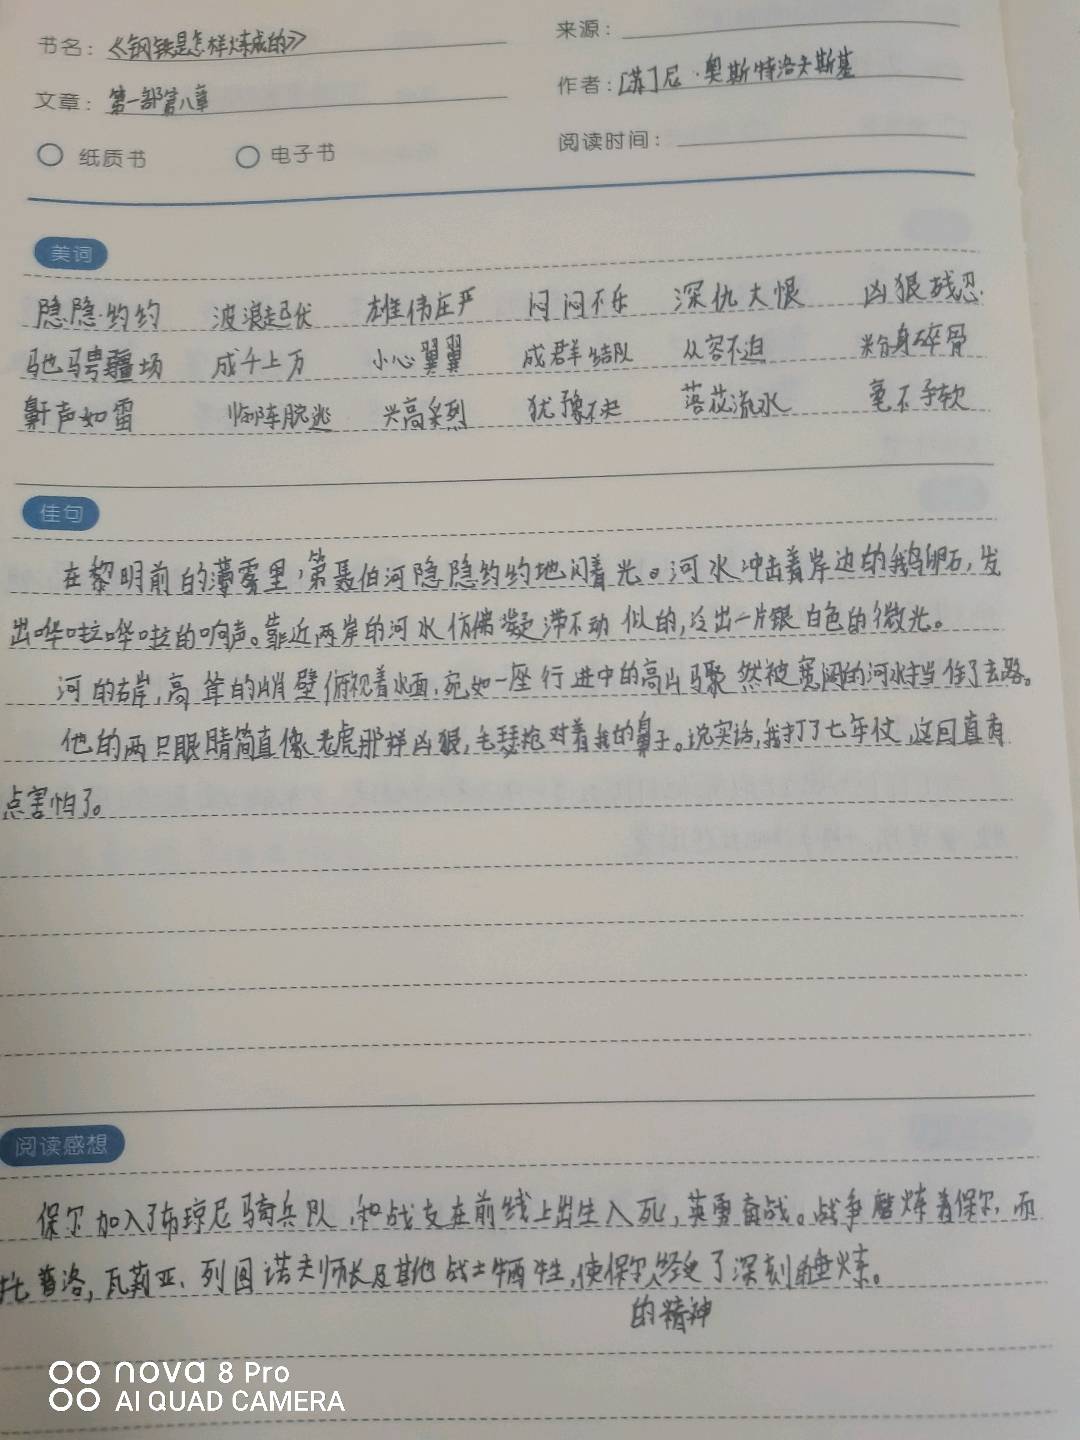 书名：《钢铁是怎样炼成的》
来源：
文章：第一部第八章
作者：[苏]尼·奥斯特洛夫斯基
纸质书 电子书
阅读时间：
美词
隐隐约约 波浪起伏 雄伟庄严 闷闷不乐 深仇大恨 凶狠残忍
驰骋疆场 成千上万 小心翼翼 成群结队 从容不迫 粉身碎骨
鼾声如雷 临阵脱逃 兴高采烈 犹豫不决 落花流水 毫不手软
佳句
在黎明前的薄雾里，第聂伯河隐隐约约地闪着光。河水冲击着岸边的鹅卵石，发
出哗啦哗啦的响声。靠近两岸的河水仿佛凝滞不动似的，泛出一片银白色的微光。
河的右岸，高耸的峭壁俯视着水面，宛如一座行进中的高山骤然被宽阔的河水挡住了去路。
他的两只眼睛简直像老虎那样凶狠，毛瑟枪对着我的鼻子。说实话，我打了七年仗，这回真有
点害怕了。
阅读感想
保尔加入了布琼尼骑兵队，和战友在前线上出生入死，英勇奋战。战争磨炼着保尔，而
托普洛，瓦莉亚、列图诺夫师长及其他战士牺牲，使保尔经受了深刻锤炼。
的精神
nova 8 Pro
AI QUAD CAMERA